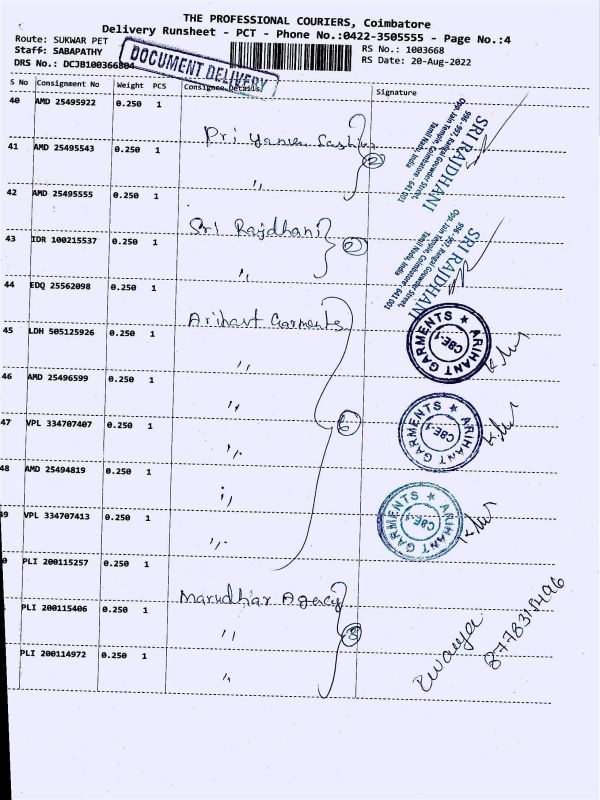 THE PROFESSIONAL COURIERS, Coimbatore
Delivery Runsheet - PCT - Phone No.:0422-3505555 - Page No.:4
Route: SUKWAR PET
RS No.: 1003668
Staff: SABAPATHY
RS Date: 20-Aug-2022
DRS No.: DCJB100366804
DOCUMENT DELIVERY
S No Consignment No Weight PCS Consignee Details Signature
40 AMD 25495922 0.250 1
41 AMD 25495543 0.250 1 "
42 AMD 25495555 0.250 1 Sri Rajdhani
43 IDR 100215537 0.250 1 "
44 EDQ 25562098 0.250 1 Arihant Garments
45 LDH 505125926 0.250 1 "
46 AMD 25496599 0.250 1 "
47 VPL 334707407 0.250 1 "
48 AMD 25494819 0.250 1 "
49 VPL 334707413 0.250 1 "
0 PLI 200115257 0.250 1 Marudhar Agency
PLI 200115406 0.250 1 "
PLI 200114972 0.250 1 "
2
2
6
3
SRI RAJDHANI
996 - 997, Rangai Gowder Street,
Opp. Jain Temple, Coimbatore - 641 001
Tamil Nadu, India
SRI RAJDHANI
996 - 997, Rangai Gowder Street,
Opp. Jain Temple, Coimbatore - 641 001
Tamil Nadu, India
ARIHANT GARMENTS ★
CBE-1
ARIHANT GARMENTS ★
CBE-1
ARIHANT GARMENTS ★
CBE-1